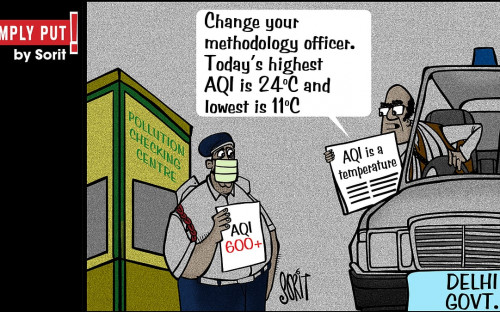 MPLY PUT!
by Sorit
Change your
methodology officer.
Today's highest
AQI is 24°C and
lowest is 11°C
POLLUTION
CHECKING
CENTRE
AQI is a
temperature
AQI
600+
SORIT
DELHI
GOVT.